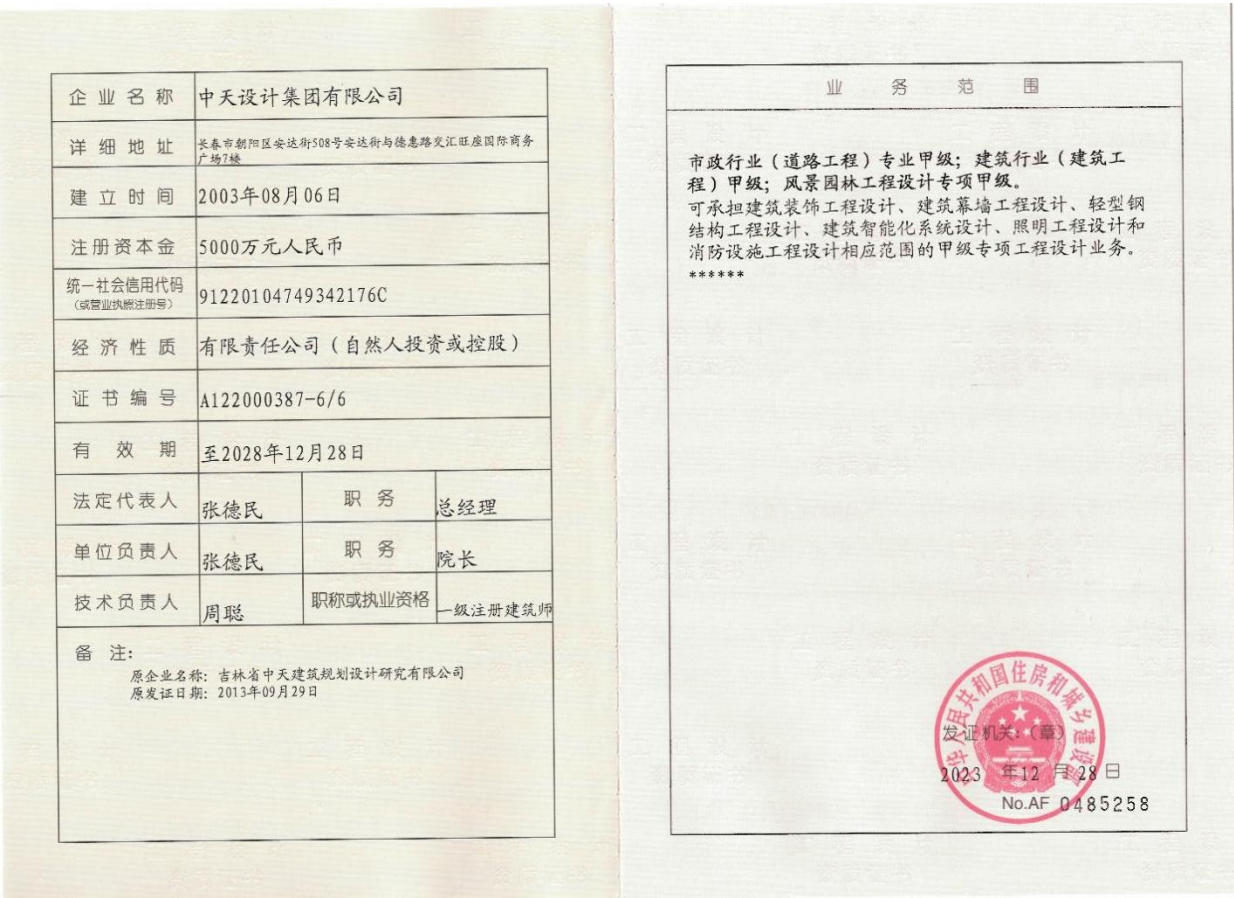 企业名称 中天设计集团有限公司
详细地址 长春市朝阳区安达街508号安达街与德惠路交汇旺座国际商务
广场7楼
建立时间 2003年08月06日
注册资本金 5000万元人民币
统一社会信用代码
(或营业执照注册号) 91220104749342176C
经济性质 有限责任公司（自然人投资或控股）
证书编号 A122000387-6/6
有效期 至2028年12月28日
法定代表人 张德民 职务 总经理
单位负责人 张德民 职务 院长
技术负责人 周聪 职称或执业资格 一级注册建筑师
备注:
原企业名称: 吉林省中天建筑规划设计研究有限公司
原发证日期: 2013年09月29日
业务范围
市政行业（道路工程）专业甲级；建筑行业（建筑工
程）甲级；风景园林工程设计专项甲级。
可承担建筑装饰工程设计、建筑幕墙工程设计、轻型钢
结构工程设计、建筑智能化系统设计、照明工程设计和
消防设施工程设计相应范围的甲级专项工程设计业务。
******
中华人民共和国住房和城乡建设部
发证机关:（章）
2023 年12 月 28 日
No.AF 0485258